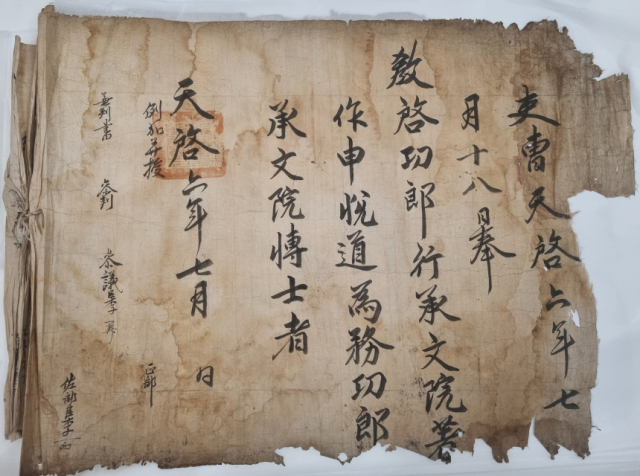 吏曹天啓六年七
月十八日奉
敎啓功郎行承文院著
作申悅道為務功郎
承文院博士者
天啓六年七月 日
例加英授
判書 參判 參議 正郎
佐郎